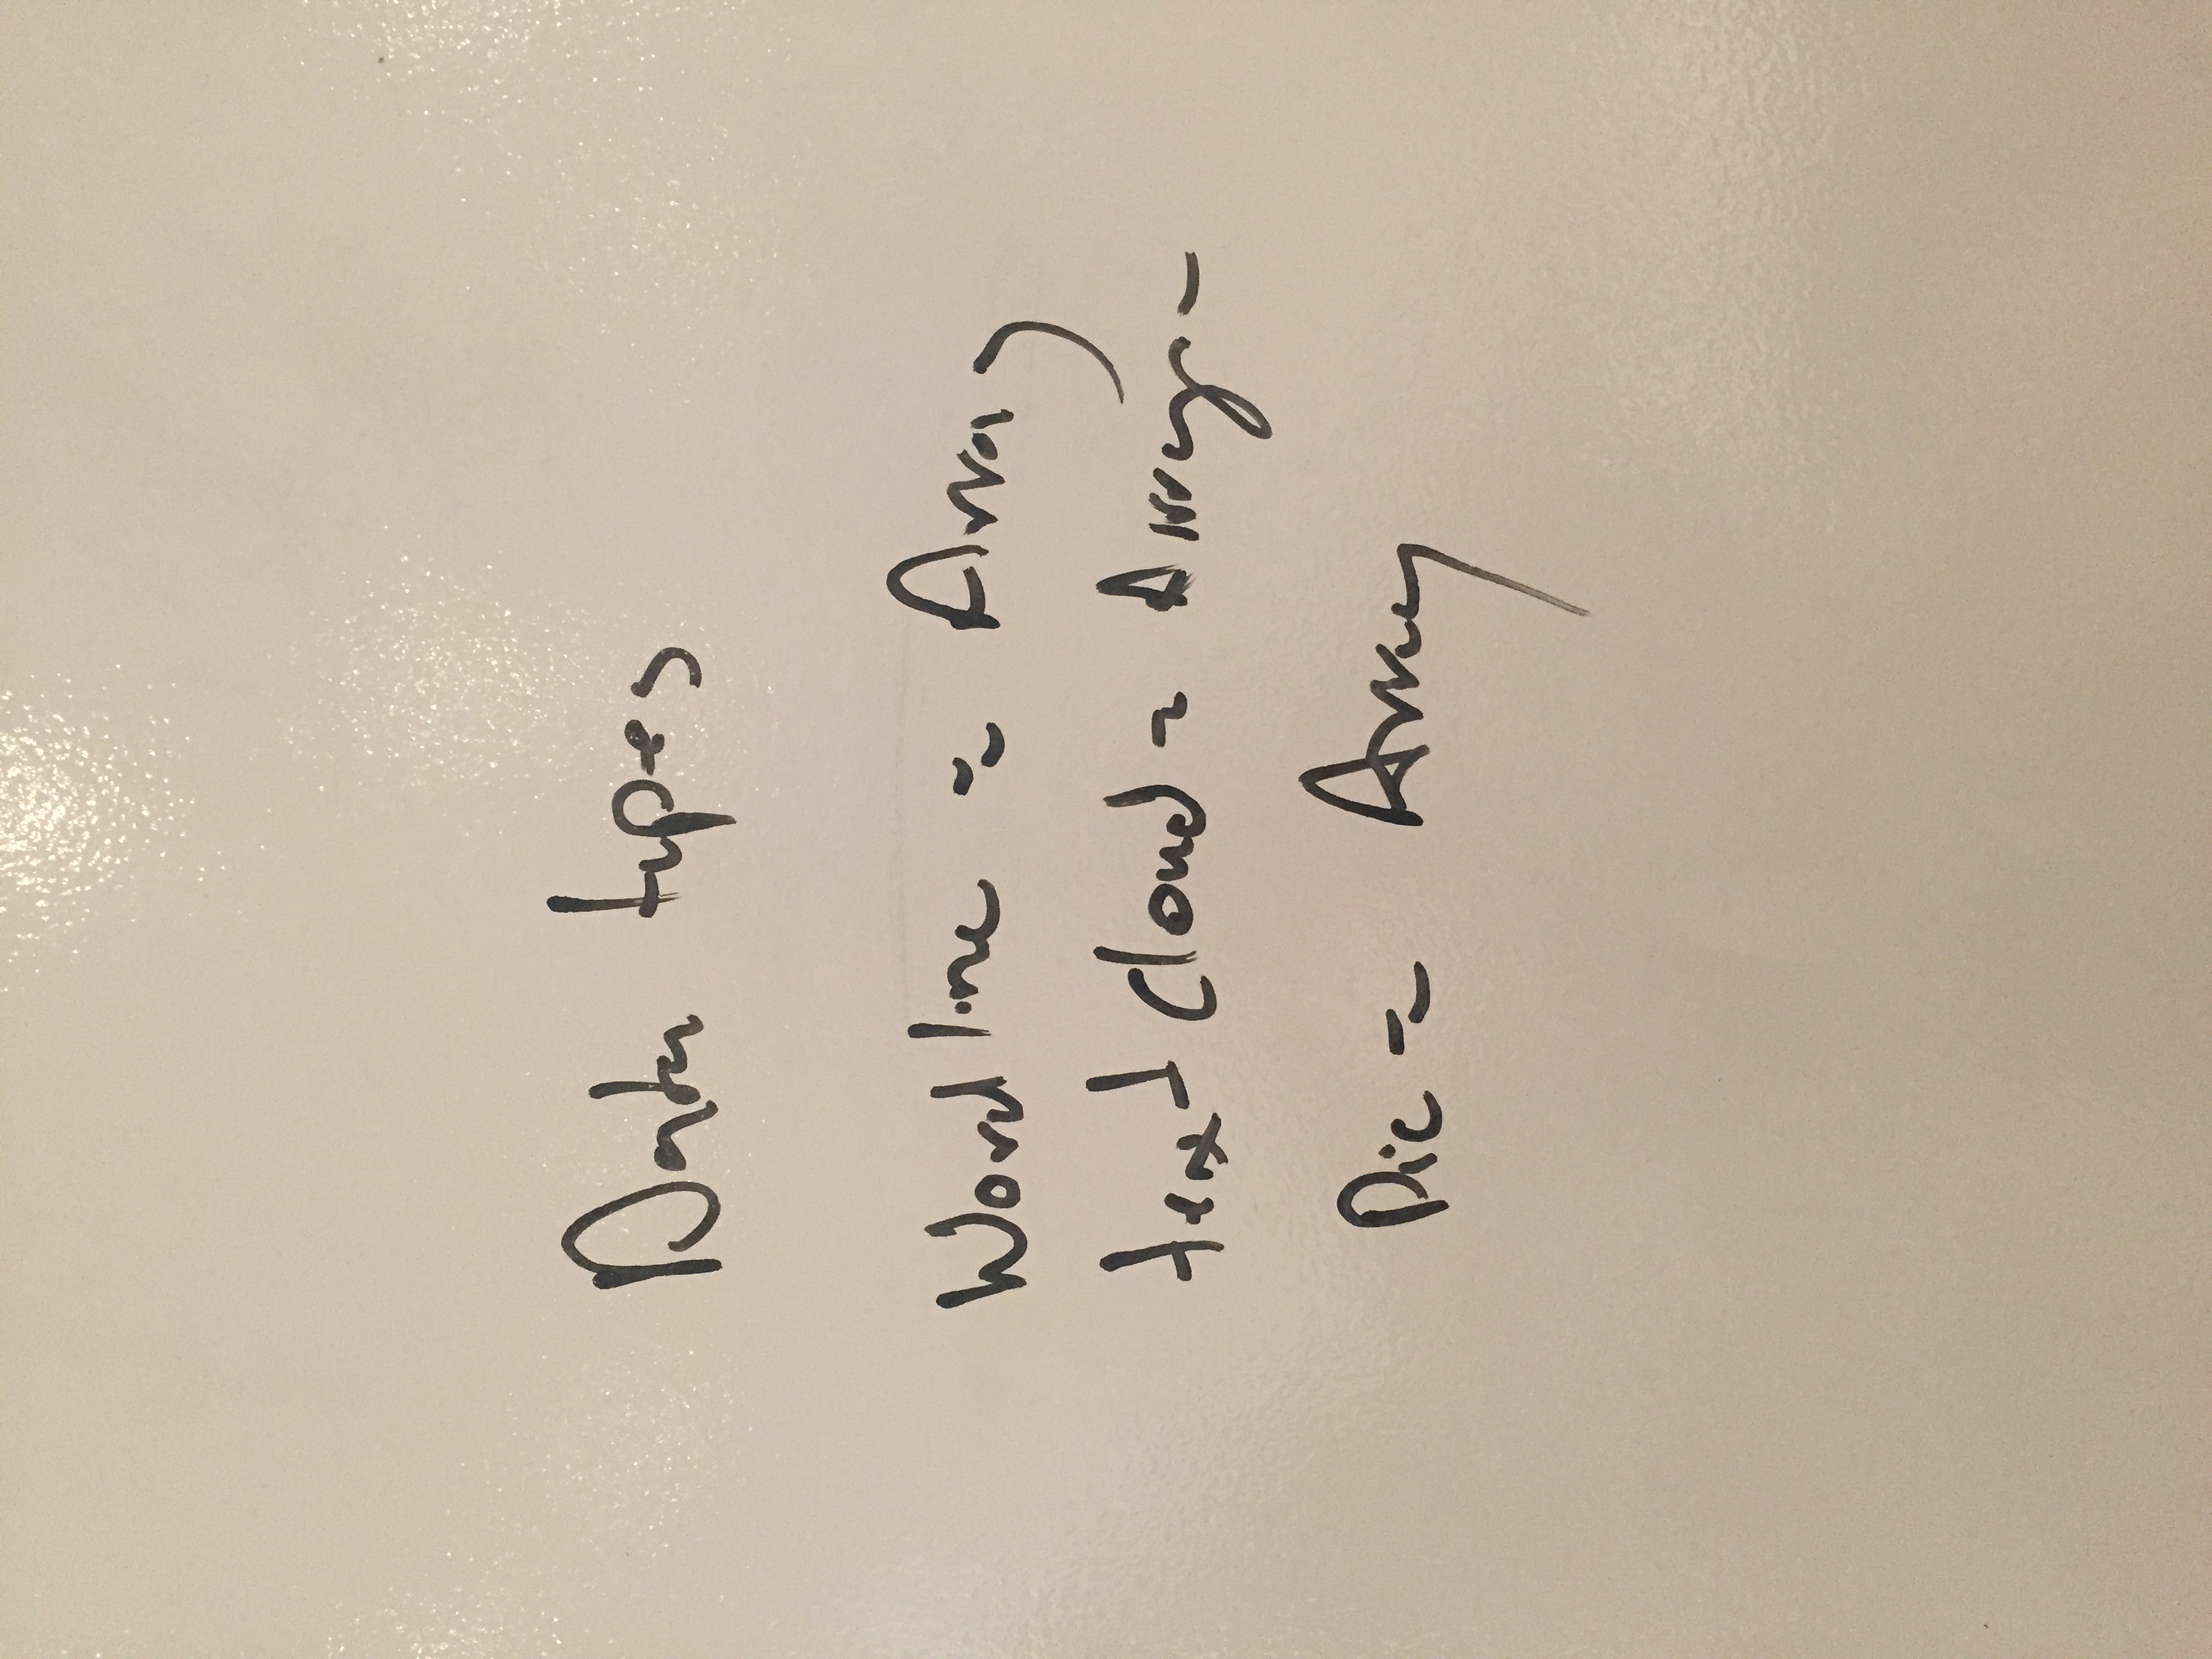 Data types
Wordline = Array
text cloud = Array
Pie = Array